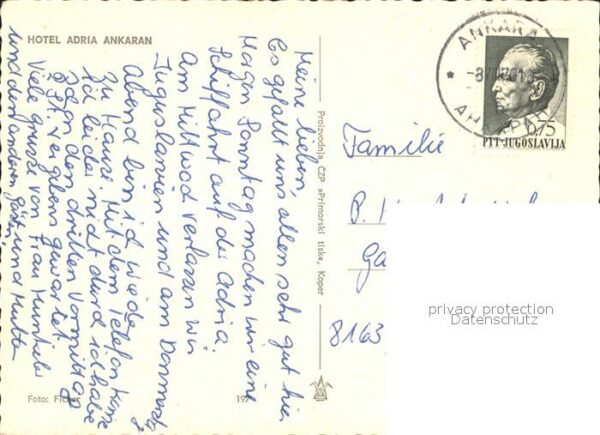 HOTEL ADRIA ANKARAN
Meine lieben,
Es gefällt uns allen sehr gut hier
Morgen Sonntag machen wir eine
Schiffahrt auf der Adria.
Am Mittwoch verlassen wir
Jugoslavien und am Donnerstag
Abend bin ich wieder
zu Hause. Mit dem Telefon
leider nicht durch ich habe
schon den dritten Vormittag
vergebens gewartet
Viele Grüße von Frau
und den anderen und Mutter
Proizvodnja ČZP »Primorski tisk«, Koper
Foto: Ficker
197
ANKARAN
PTT JUGOSLAVIJA
0,75
Familie
B.
Ga
8163
privacy protection
Datenschutz